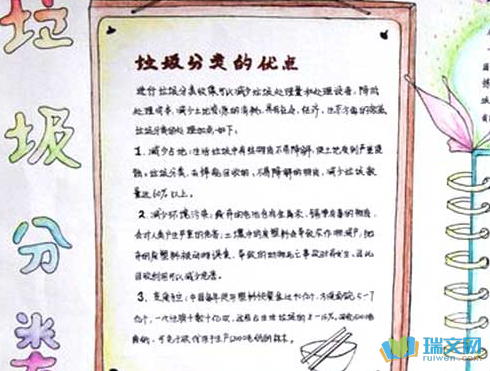 垃
圾
分
类
垃圾分类的优点
进行垃圾分类收集可以减少垃圾处理量和处理设备，降低
处理成本，减少土地资源的消耗，具有社会，经济，生态方面的效益
垃圾分类的处理优点如下：
1、减少占地：生活垃圾中有些物质不易降解，使土地受到严重侵
蚀。垃圾分类，去掉能回收的，不易降解的物质，减少垃圾数
量达60%以上。
2、减少环境污染：废弃的电池含有金属汞，镉等有毒的物质，
会对人类产生严重的危害；土壤中的废塑料会导致农作物减产；抛
弃的废塑料被动物误食，导致动物死亡事故时有发生。因此
回收利用可以减少危害。
3、变废为宝：中国每年使用塑料快餐盒达40亿个，方便面碗5-7
亿个，一次性筷子数十亿双，这些占生活垃圾的8-15%。
瑞文网
ruiwen.com